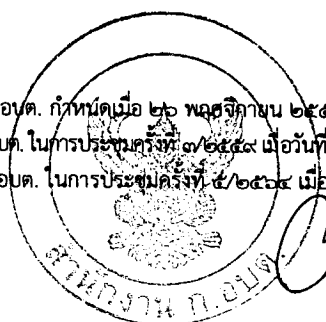 อบต. กำหนดเมื่อ ๒๖ พฤศจิกายน ๒๕๔
บต. ในการประชุมครั้งที่ ๓/๒๕๕๙ เมื่อวันที่
อบต. ในการประชุมครั้งที่ ๕/๒๕๖๔ เมื่อ
สำนักงาน ก.อบต.